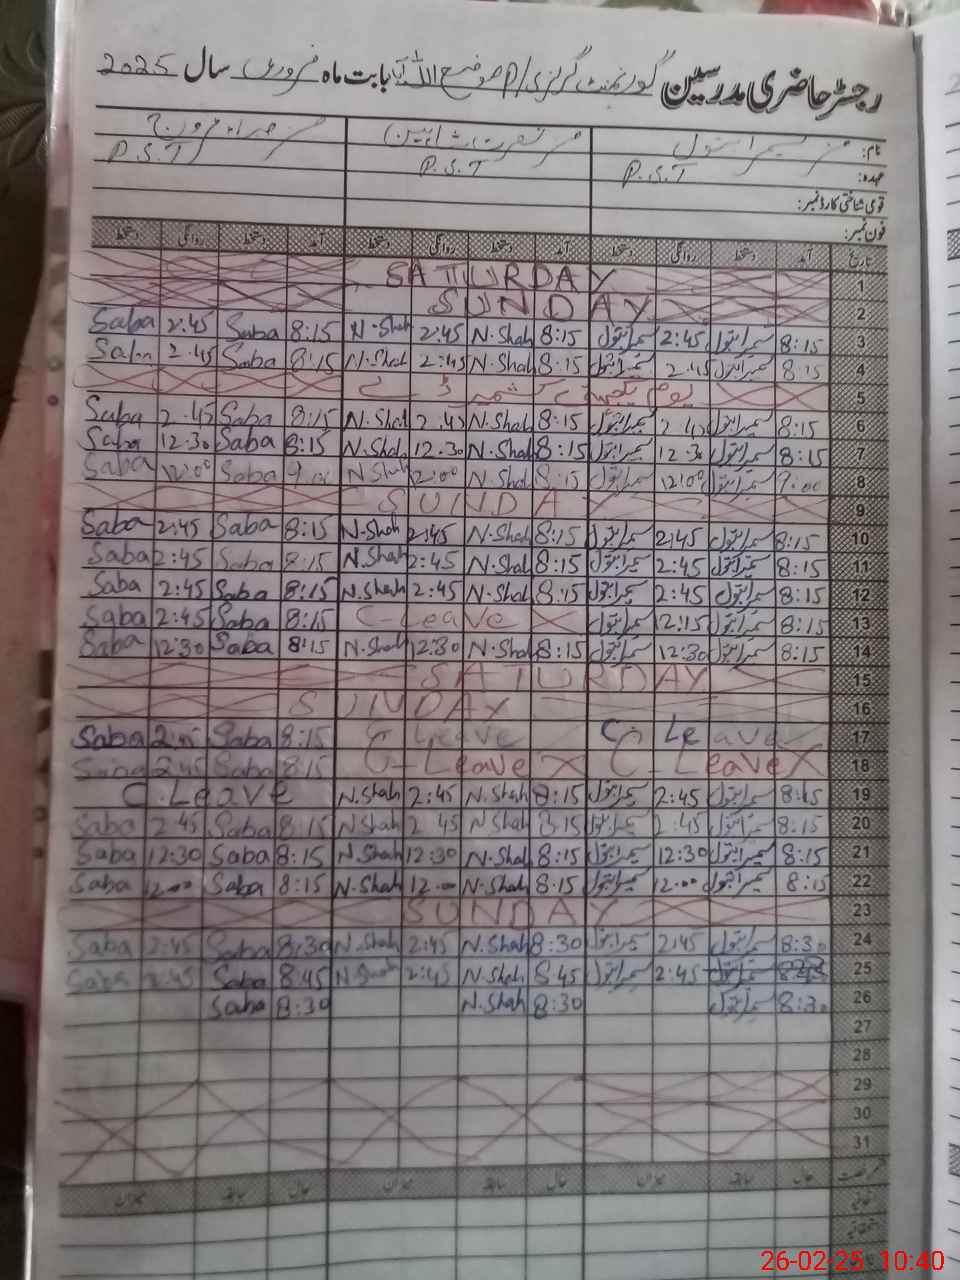 رجسٹر حاضری مدرسین گورنمنٹ گرلز بابت ماہ فروری سال 2025
نام:
عہدہ: P.S.T P.S.T P.S.T
قومی شناختی کارڈ نمبر:
فون نمبر:
تاریخ آمد دستخط روانگی دستخط آمد دستخط روانگی دستخط آمد دستخط روانگی دستخط
1 SATURDAY
2 SUNDAY
3 8:15 سمیرا بتول 2:45 سمیرا بتول 8:15 N.Shah 2:45 N.Shah 8:15 Saba 2:45 Saba
4 8:15 سمیرا بتول 2:45 سمیرا بتول 8:15 N.Shah 2:45 N.Shah 8:15 Saba 2:45 Saba
5 یوم یکجہتی کشمیر ڈے
6 8:15 سمیرا بتول 2:45 سمیرا بتول 8:15 N.Shah 2:45 N.Shah 8:15 Saba 2:45 Saba
7 8:15 سمیرا بتول 12:30 سمیرا بتول 8:15 N.Shah 12:30 N.Shah 8:15 Saba 12:30 Saba
8 9:00 سمیرا بتول 12:00 سمیرا بتول 8:15 N.Shah 12:00 N.Shah 9:00 Saba 12:00 Saba
9 SUNDA
10 8:15 سمیرا بتول 2:45 سمیرا بتول 8:15 N.Shah 2:45 N.Shah 8:15 Saba 2:45 Saba
11 8:15 سمیرا بتول 2:45 سمیرا بتول 8:15 N.Shah 2:45 N.Shah 8:15 Saba 2:45 Saba
12 8:15 سمیرا بتول 2:45 سمیرا بتول 8:15 N.Shah 2:45 N.Shah 8:15 Saba 2:45 Saba
13 8:15 سمیرا بتول 12:15 سمیرا بتول C-Leave 8:15 Saba 2:45 Saba
14 8:15 سمیرا بتول 12:30 سمیرا بتول 8:15 N.Shah 12:30 N.Shah 8:15 Saba 12:30 Saba
15 SATURDAY
16 SUNDAY
17 C Leave C Leave 8:15 Saba Saba
18 C-Leave C-Leave 8:15 Saba 2:45 Saba
19 8:15 سمیرا بتول 2:45 سمیرا بتول 8:15 N.Shah 2:45 N.Shah C.Leave
20 8:15 سمیرا بتول 2:45 سمیرا بتول 8:15 N.Shah 2:45 N.Shah 8:15 Saba 2:45 Saba
21 8:15 سمیرا بتول 12:30 سمیرا بتول 8:15 N.Shah 12:30 N.Shah 8:15 Saba 12:30 Saba
22 8:15 سمیرا بتول 12:00 سمیرا بتول 8:15 N.Shah 12:00 N.Shah 8:15 Saba 12:00 Saba
23 SUNDAY
24 8:30 سمیرا بتول 2:45 سمیرا بتول 8:30 N.Shah 2:45 N.Shah 8:30 Saba 2:45 Saba
25 سمیرا بتول 2:45 سمیرا بتول 8:45 N.Shah 2:45 N.Shah 8:45 Saba 2:45 Saba
26 8:30 سمیرا بتول 8:30 N.Shah 8:30 Saba
27
28
29
30
31
حال سابقہ میزان حال سابقہ میزان حال سابقہ میزان
26-02-25 10:40